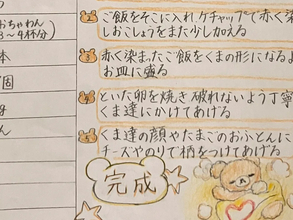 おちゃわん
3~4杯分)
本
個
ん
ご飯をそこに入れケチャップで赤く染
しおこしょうをまた少し加える
赤く染まったご飯をくまの形になるよ
お皿に盛る
といた卵を焼き破れないよう丁寧
くま達にかけてあげる
くま達の顔やたまごのおふとんに
チーズやのりで柄をつけてあげる
完成